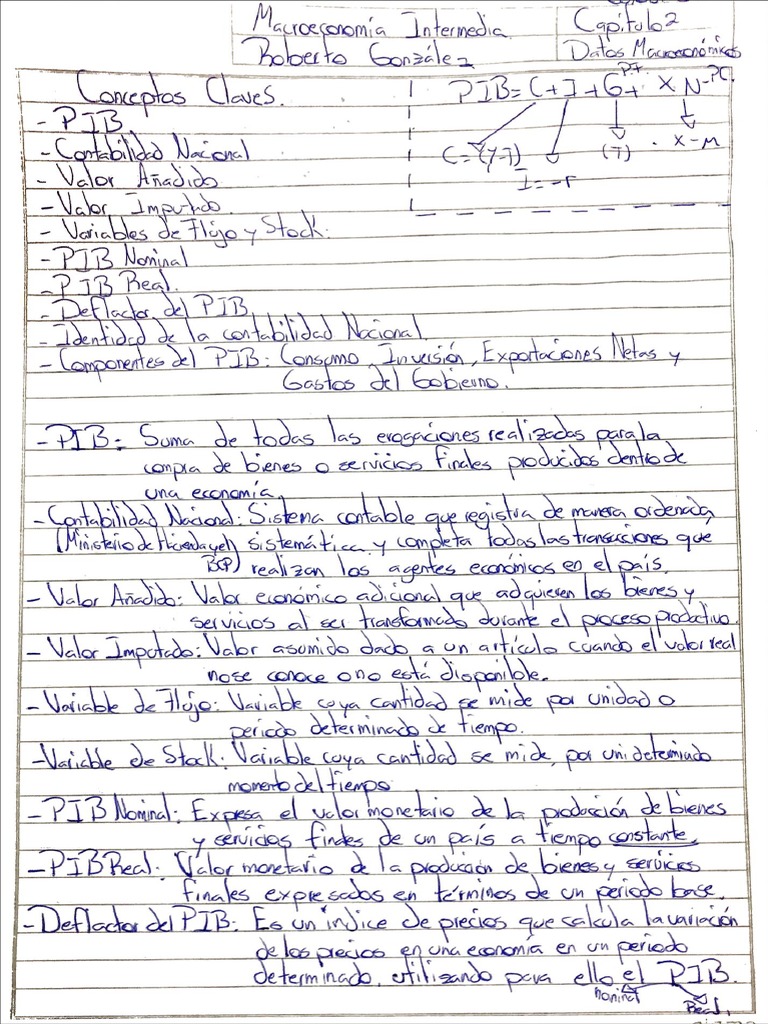 Macroeconomía Intermedia
Roberto González
Capítulo 2
Datos Macroeconómicos
Conceptos Claves.
- PIB
- Contabilidad Nacional
- Valor Añadido
- Valor Imputado.
- Variables de Flujo y Stock.
- PIB Nominal
- PIB Real.
- Deflactor del PIB
- Identidad de la contabilidad Nacional.
- Componentes del PIB: Consumo, Inversión, Exportaciones Netas y
Gastos del Gobierno.
PIB = C + I + G + XN
C = (Y-T)
I = -r
(T)
X-M
- PIB: Suma de todas las erogaciones realizadas para la
compra de bienes o servicios finales producidos dentro de
una economía.
- Contabilidad Nacional: Sistema contable que registra de manera ordenada,
(Ministerio de Hacienda y el sistemática y completa todas las transacciones que
BCP) realizan los agentes económicos en el país.
- Valor Añadido: Valor económico adicional que adquieren los bienes y
servicios al ser transformado durante el proceso productivo.
- Valor Imputado: Valor asumido dado a un artículo cuando el valor real
no se conoce o no está disponible.
- Variable de Flujo: Variable cuya cantidad se mide por unidad o
periodo determinado de tiempo.
- Variable de Stock: Variable cuya cantidad se mide, por un determinado
momento del tiempo
- PIB Nominal: Expresa el valor monetario de la producción de bienes
y servicios finales de un país a tiempo constante.
- PIB Real: Valor monetario de la producción de bienes y servicios
finales expresados en términos de un periodo base.
- Deflactor del PIB: Es un índice de precios que calcula la variación
de los precios en una economía en un periodo
determinado, utilizando para ello el PIB.
nominal
Real.